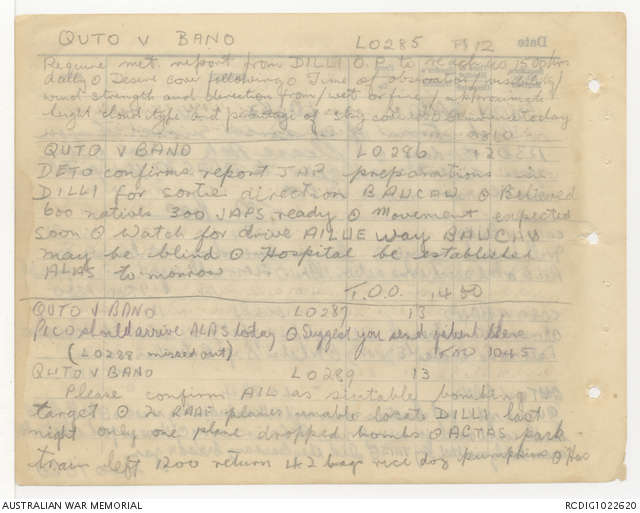 QUTO V BANO LO285 12 Date
Require met. report from DILLI O.P. to reach us 1500 hrs
daily O Desire cover following O Time of observation / visibility /
wind strength and direction from / wet or fine / approximate
height cloud type and percentage of sky
0810
QUTO V BANO LO286 12
DETO confirms report JAP preparations in
DILLI for sortie direction BAUCAU O Believed
600 natives 300 JAPS ready O Movement expected
soon O Watch for drive AILUE way BAUCAU
may be blind O Hospital be established
ALAS to morrow
T.O.O. 1450
QUTO V BANO LO287 13
PICO should arrive ALAS today O Suggest you send patient there
(LO288 missed out) 1045
QUTO V BANO LO289 13
Please confirm AIL as suitable bombing
target O 2 RAAF planes unable locate DILLI last
night only one plane dropped bombs O ACTAS pack
train left 1200 return 42 bags rice doz pumpkins O Has
AUSTRALIAN WAR MEMORIAL RCDIG1022620